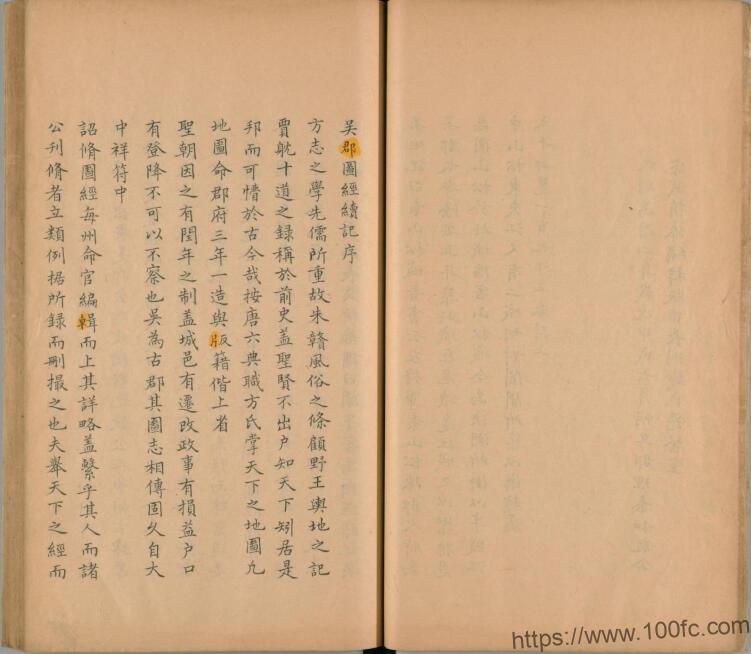 吳郡圖經續記序
方志之學先儒所重故朱贛風俗之條顧野王輿地之記
賈躭十道之録稱於前史蓋聖賢不出户知天下矧居是
邦而可懵於古今哉按唐六典職方氏掌天下之地圖凡
地圖命郡府三年一造與版籍偕上省
聖朝因之有閏年之制蓋城邑有遷改政事有損益户口
有登降不可以不察也吳為古郡其圖志相傳固久自大
中祥符中
詔脩圖經每州命官編輯而上其詳略蓋繫乎其人而諸
公刊脩者立類例据所録而刪撮之也夫舉天下之經而
https://www.100fc.com